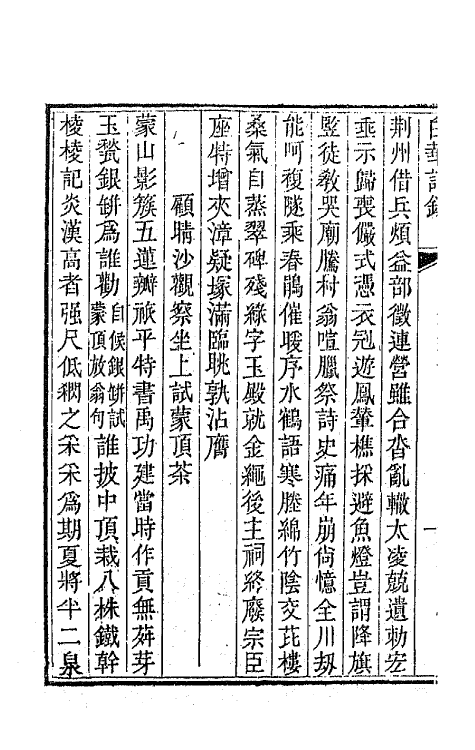 白華詩鈔
荆州借兵煩益部徵連營雖合沓亂轍太凌兢遺勅宏
垂示歸喪儼式憑衣冠遊鳳輦樵採避魚燈豈謂降旗
豎徒教哭廟騰村翁喧臘祭詩史痛年崩尚憶全川刼
能呵複隧乘春鵑催暖序水鶴語寒塍綿竹陰交芘樓
桑氣自蒸翠碑殘綠字玉殿就金繩後主祠終廢宗臣
座特增夾漳疑塚滿臨眺孰沾膺
顧晴沙觀察坐上試蒙頂茶
蒙山影簇五蓮瓣旅平特書禹功建當時作貢無茻芽
玉甃銀缾爲誰勸自候銀缾試蒙頂放翁句誰披中頂栽八株鐵幹
棱棱記炎漢高者强尺低稱之采采爲期夏將半二泉